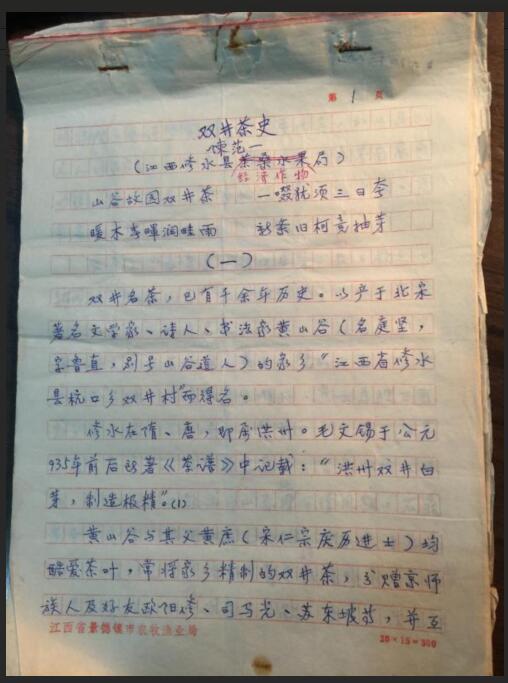 第 1 页
双井茶史
陳范一
(江西修水县茶桑水果局)
经济作物
山谷故园双井茶 一啜犹须三日夸
暖水春晖润畦雨 新条旧柯竞抽芽
(一)
双井名茶，已有千余年历史。以产于北宋
著名文学家、诗人、书法家黄山谷(名庭坚，
字鲁直，别号山谷道人)的家乡“江西省修水
县杭口乡双井村”而得名。
修水在隋、唐，即属洪州。毛文锡于公元
935年前后所著《茶谱》中记载：“洪州双井白
芽，制造极精”。(1)
黄山谷与其父黄庶(宋仁宗庆历进士)均
酷爱茶叶，常将家乡精制的双井茶，分赠京师
族人及好友欧阳修、司马光、苏东坡等，并互
江西省景德镇市农牧渔业局 20×15=300